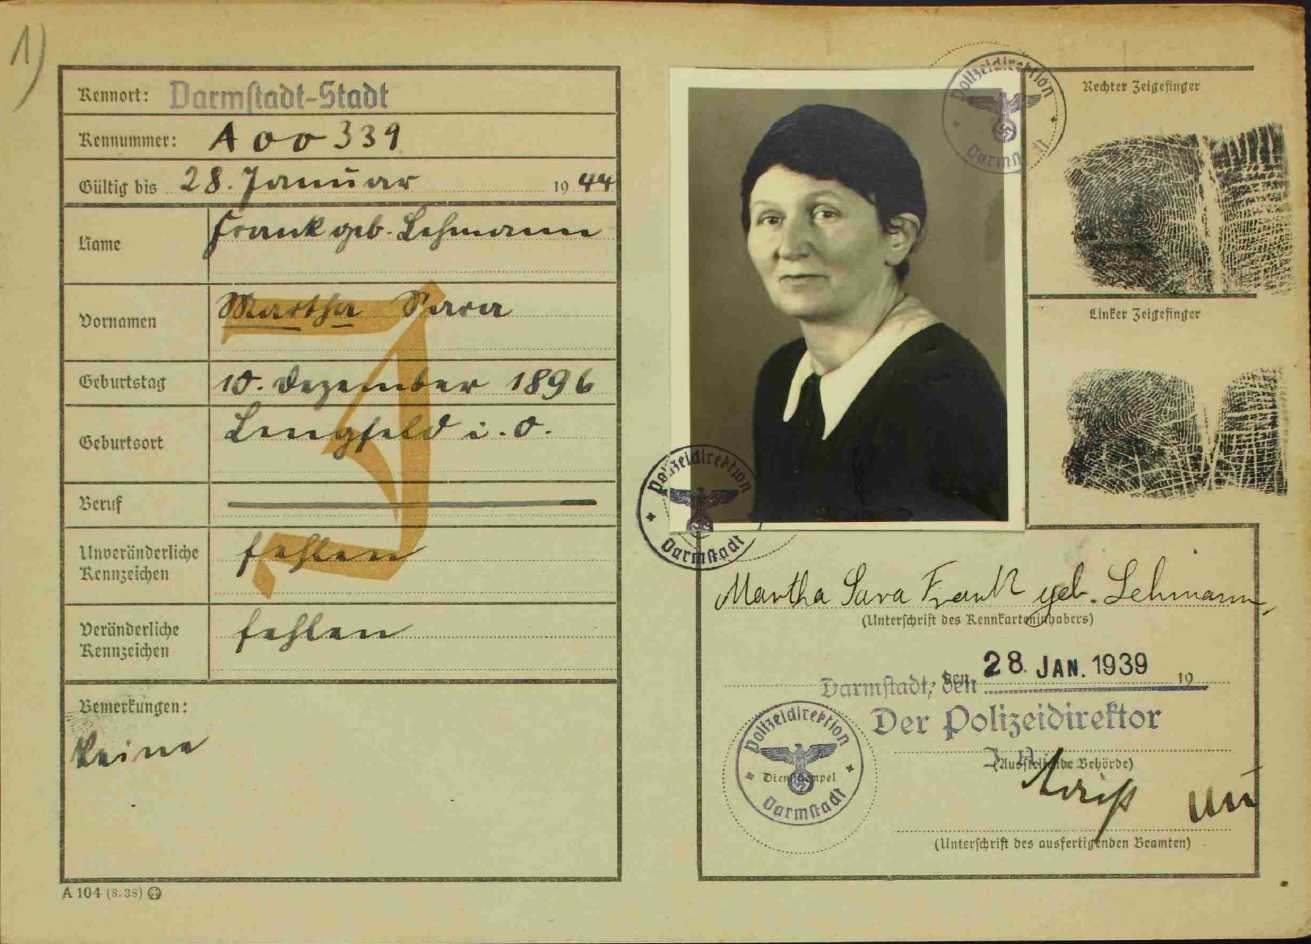 1)
Kennort: Darmstadt-Stadt
Kennummer: A 00339
Gültig bis 28. Januar 19 44
Name Frank geb. Lehmann
Vornamen Martha Sara
Geburtstag 10. Dezember 1896
Geburtsort Lengfeld i. O.
Beruf
Unveränderliche Kennzeichen fehlen
Veränderliche Kennzeichen fehlen
Bemerkungen:
Keine
J
A 104 (8.38)
Polizeidirektion Darmstadt
Rechter Zeigefinger
Linker Zeigefinger
Polizeidirektion Darmstadt
Martha Sara Frank geb. Lehmann
(Unterschrift des Kennkarteninhabers)
Darmstadt, den 28. JAN. 1939 19
Der Polizeidirektor
(Ausstellende Behörde)
Polizeidirektion
Dienststempel
Darmstadt
(Unterschrift des ausfertigenden Beamten)